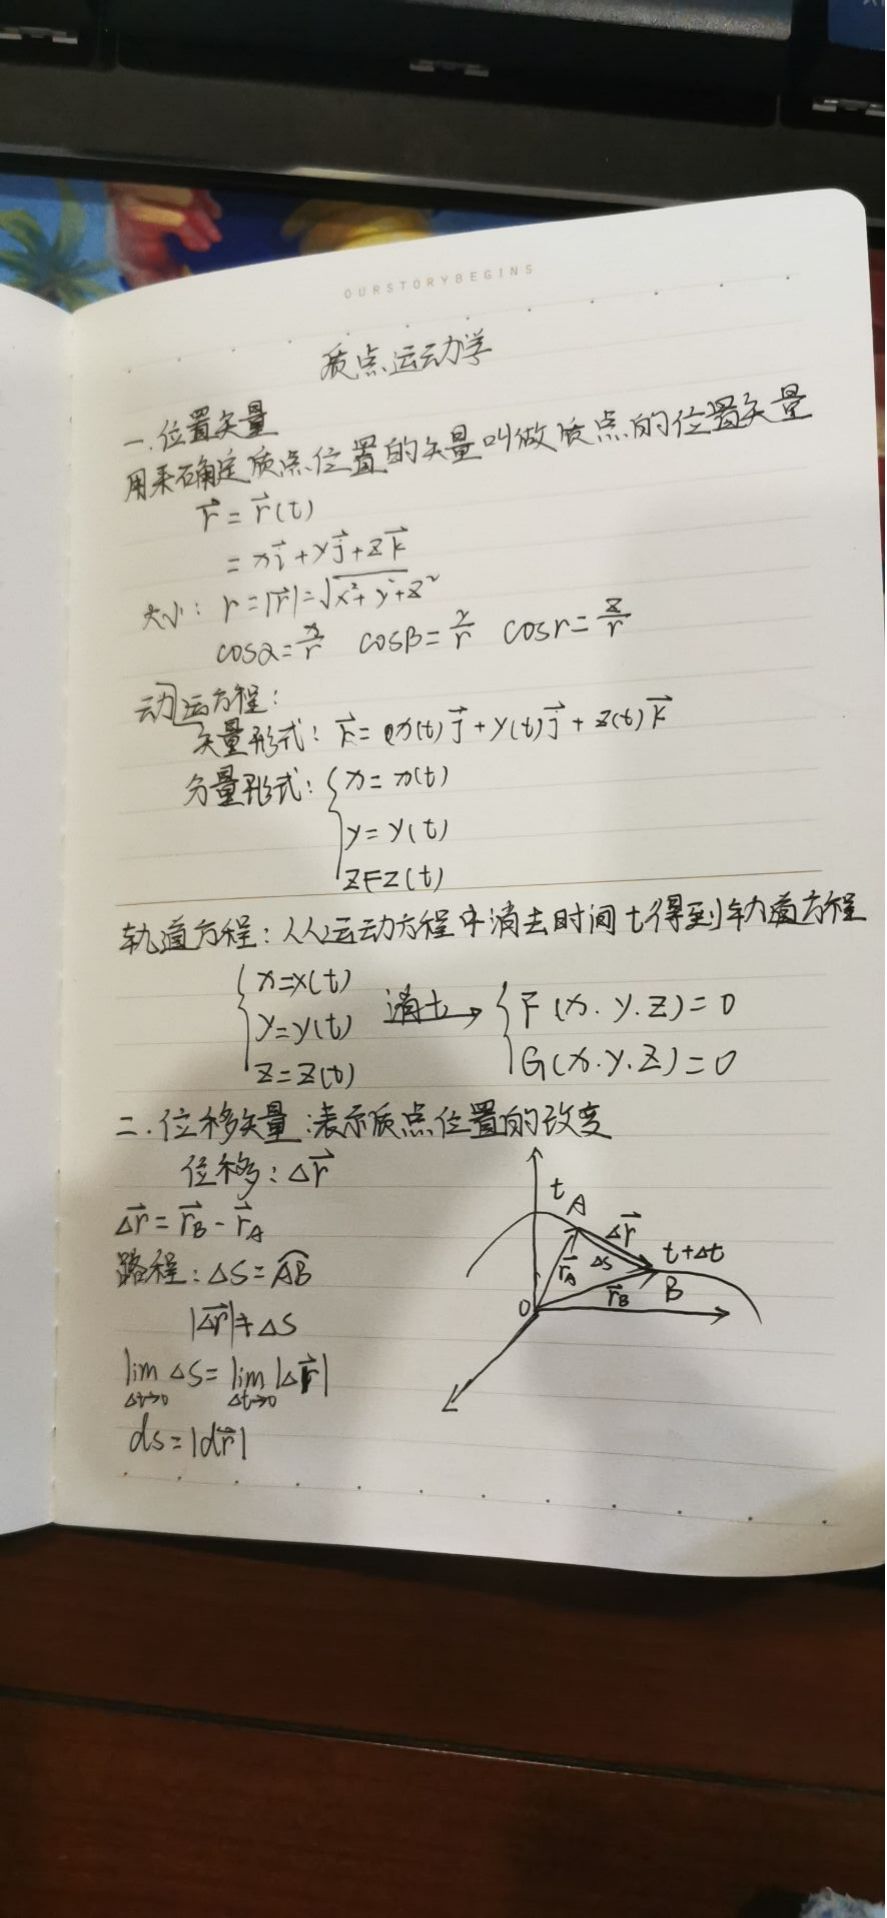 OURSTORYBEGINS
质点运动学
一.位置矢量
用来确定质点位置的矢量叫做质点的位置矢量
r⃗ = r⃗(t)
= xi⃗ + yj⃗ + zk⃗
大小: r = |r⃗| = √x²+y²+z²
cosα = x/r cosβ = y/r cosr = z/r
动运方程:
矢量形式: r⃗ = x(t)j⃗ + y(t)j⃗ + z(t)k⃗
分量形式: { x = x(t)
y = y(t)
z = z(t)
轨道方程: 从运动方程中消去时间t得到轨道方程
{ x = x(t)
y = y(t) 消t → { F(x.y.z) = 0
z = z(t) G(x.y.z) = 0
二.位移矢量:表示质点位置的改变
位移: Δr⃗
Δr⃗ = r⃗B - r⃗A
路程: ΔS = AB⌒
|Δr⃗| ≠ ΔS
lim Δt→0 ΔS = lim Δt→0 |Δr⃗|
ds = |dr⃗|
t A
Δr⃗
t+Δt
r⃗A ΔS
r⃗B B
O